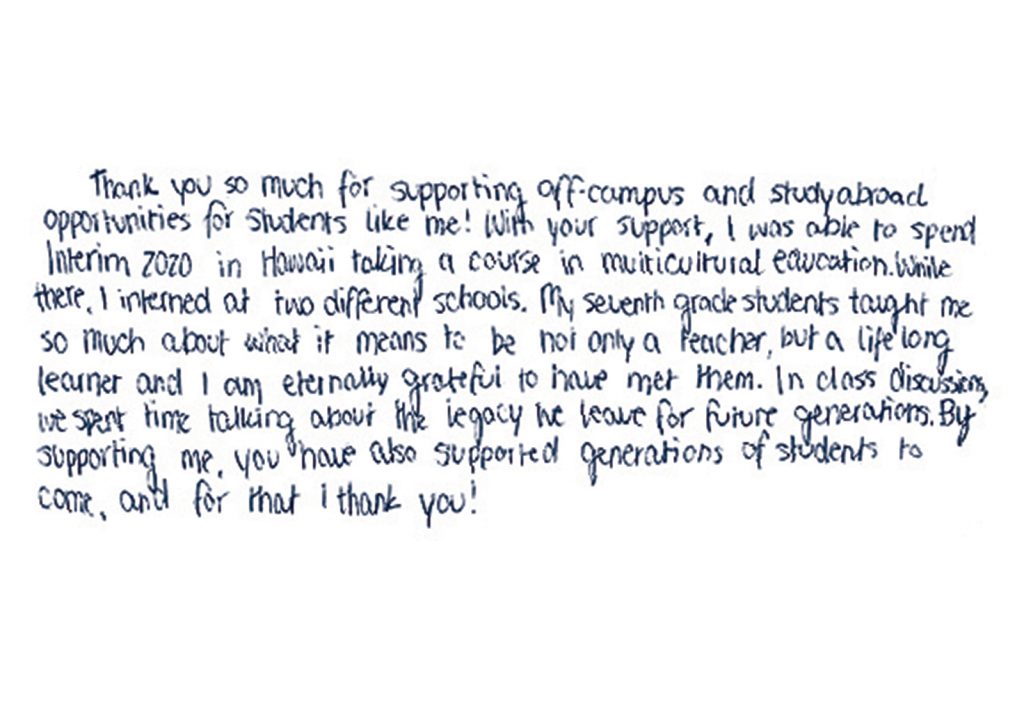 Thank you so much for supporting off-campus and study abroad
opportunities for students like me! With your support, I was able to spend
Interim 2020 in Hawaii taking a course in multicultural education. While
there, I interned at two different schools. My seventh grade students taught me
so much about what it means to be not only a teacher, but a life long
learner and I am eternally grateful to have met them. In class discussions,
we spent time talking about the legacy we leave for future generations. By
supporting me, you have also supported generations of students to
come, and for that I thank you!